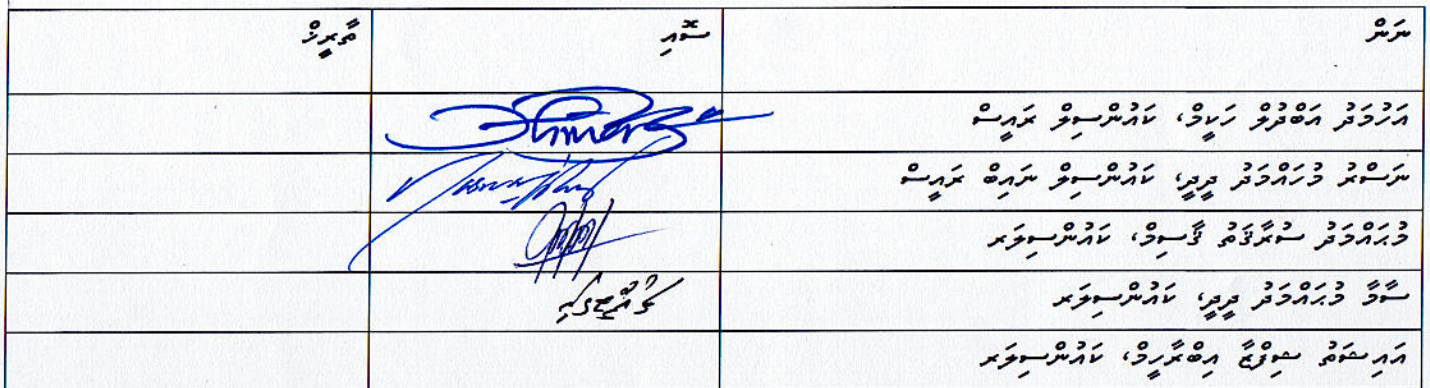 ނަން ސޮއި ތާރީޚް
އަހުމަދު އަބްދުލް ހަކީމް، ކައުންސިލް ރައީސް
ނަސްރު މުހައްމަދު ދީދީ، ކައުންސިލް ނައިބް ރައީސް
މުޙައްމަދު ސުރާޤަތު ޤާސިމް، ކައުންސިލަރ
ސާމާ މުޙައްމަދު ދީދީ، ކައުންސިލަރ
އައިޝަތު ޝިފްޒާ އިބްރާހީމް، ކައުންސިލަރ